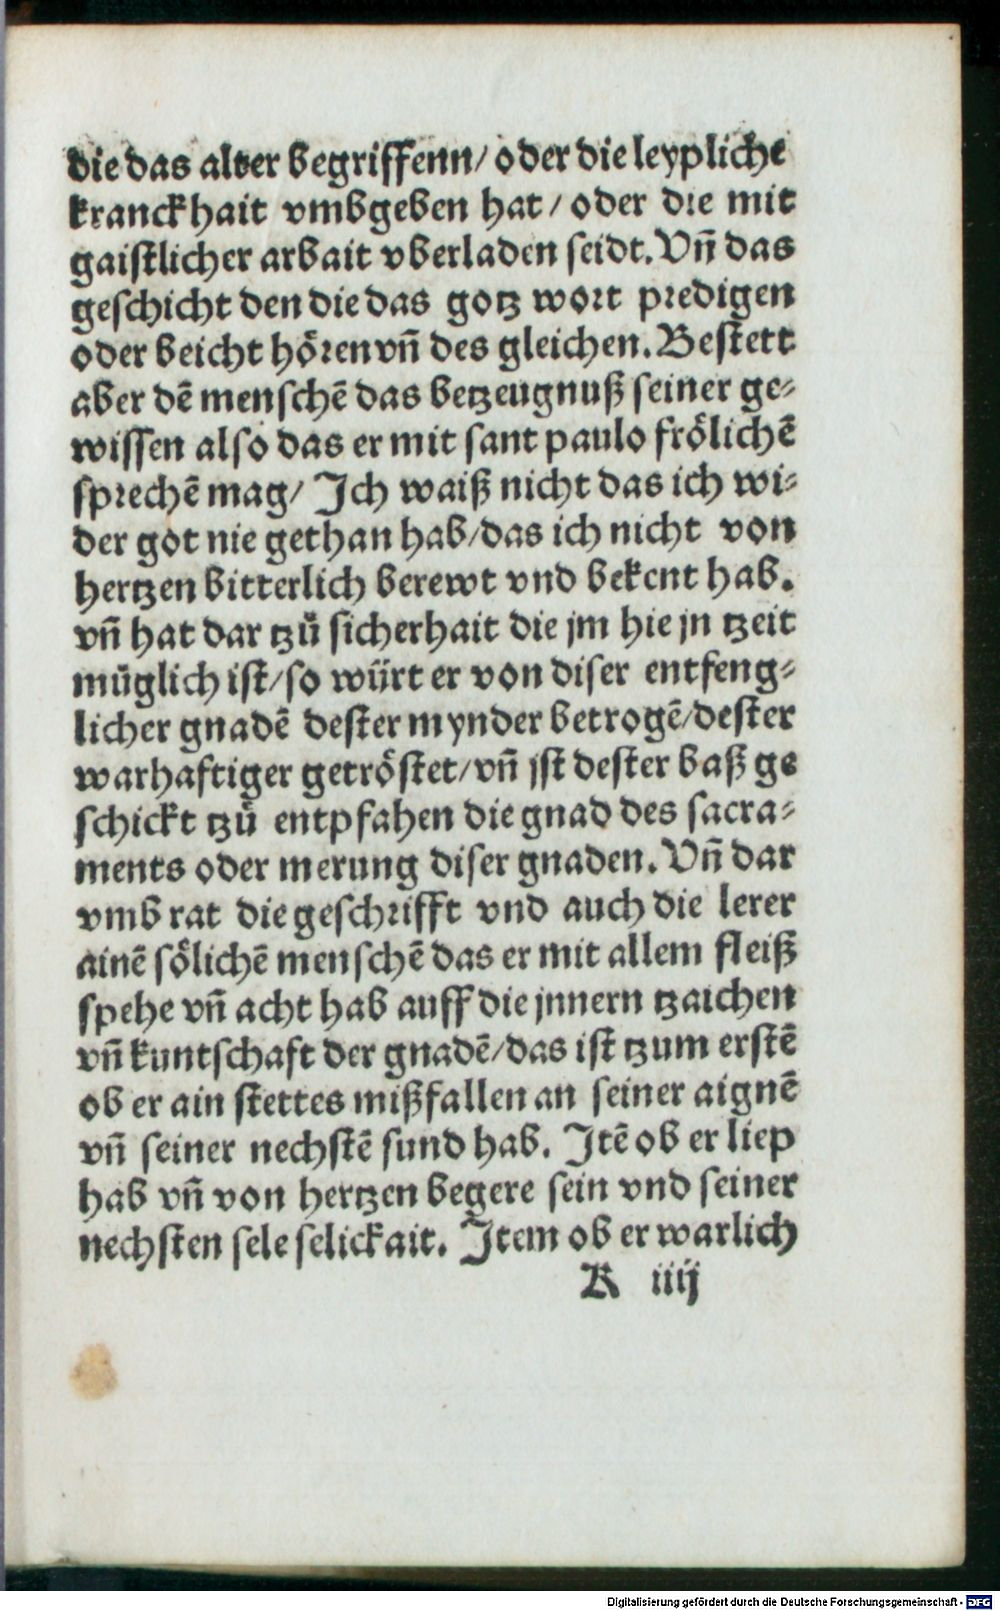 die das alter begriffenn/ oder die leypliche
kranckhait vmbgeben hat/ oder die mit
gaistlicher arbait vberladen seidt. Vn̄ das
geschicht den die das gotz wort predigen
oder beicht hören vn̄ des gleichen. Bestett
aber dē menschē das betzeugnuß seiner ge⸗
wissen also das er mit sant paulo frölichē
sprechē mag/ Ich waiß nicht das ich wi⸗
der got nie gethan hab/das ich nicht von
hertzen bitterlich berewt vnd bekent hab.
vn̄ hat dar tzů sicherhait die jm hie jn tzeit
müglich ist/so würt er von diser entfeng⸗
licher gnadē dester mynder betrogē/dester
warhaftiger getröstet/vn̄ jst dester baß ge
schickt tzů entpfahen die gnad des sacra⸗
ments oder merung diser gnaden. Vn̄ dar
vmb rat die geschrifft vnd auch die lerer
ainē sölichē menschē das er mit allem fleiß
spehe vn̄ acht hab auff die jnnern tzaichen
vn̄ kuntschaft der gnadē/das ist tzum erstē
ob er ain stettes mißfallen an seiner aignē
vn̄ seiner nechstē sund hab. Itē ob er liep
hab vn̄ von hertzen begere sein vnd seiner
nechsten sele selickait. Item ob er warlich
K iiij
Digitalisierung gefördert durch die Deutsche Forschungsgemeinschaft - DFG